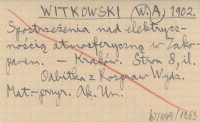 WITKOWSKI (W.A) 1902.
Spostrzeżenia nad elektrycz-
nością atmosferyczną w Zako-
panem. — Kraków. Stron 8, il.
Odbitka z Rozpraw Wydz.
Mat.-przyr. Ak. Um.